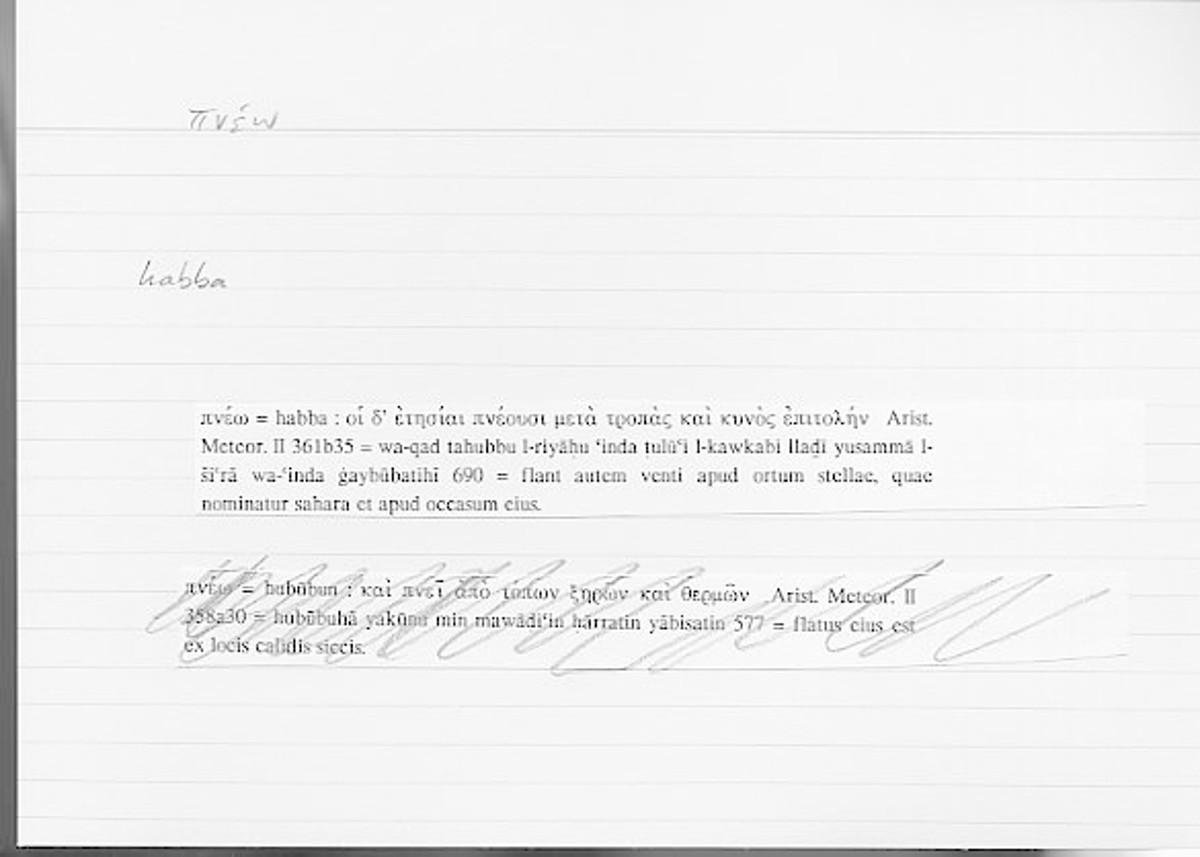 πνέω
habba
πνέω = habba : οἱ δ' ἐτησίαι πνέουσι μετὰ τροπὰς καὶ κυνὸς ἐπιτολήν Arist.
Meteor. II 361b35 = wa-qad tahubbu l-riyāḥu ʿinda ṭulūʿi l-kawkabi llaḏī yusammā l-
šiʿrā wa-ʿinda ġaybūbatihī 690 = flant autem venti apud ortum stellae, quae
nominatur sahara et apud occasum eius.
πνέω = hubūbun : καὶ πνεῖ ἀπὸ τόπων ξηρῶν καὶ θερμῶν Arist. Meteor. II
358a30 = hubūbuhā yakūnu min mawāḍiʿin ḥārratin yābisatin 577 = flatus eius est
ex locis calidis siccis.